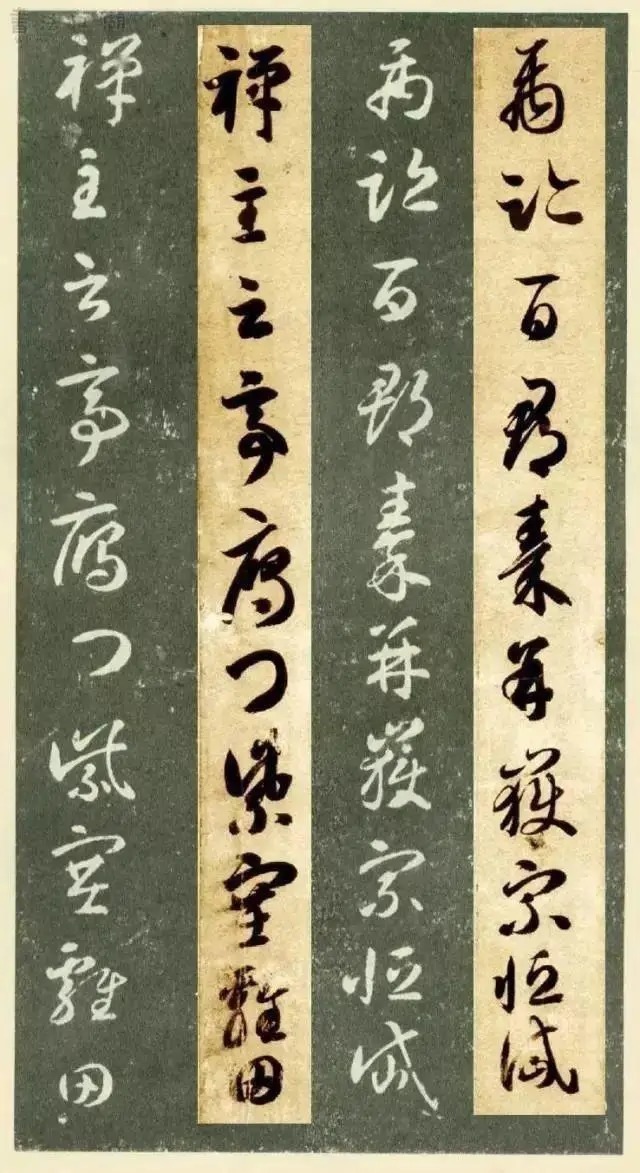 禹跡百郡秦并嶽宗恒岱
禹跡百郡秦并嶽宗恒岱
禪主云亭雁門紫塞雞田
禪主云亭雁門紫塞雞田